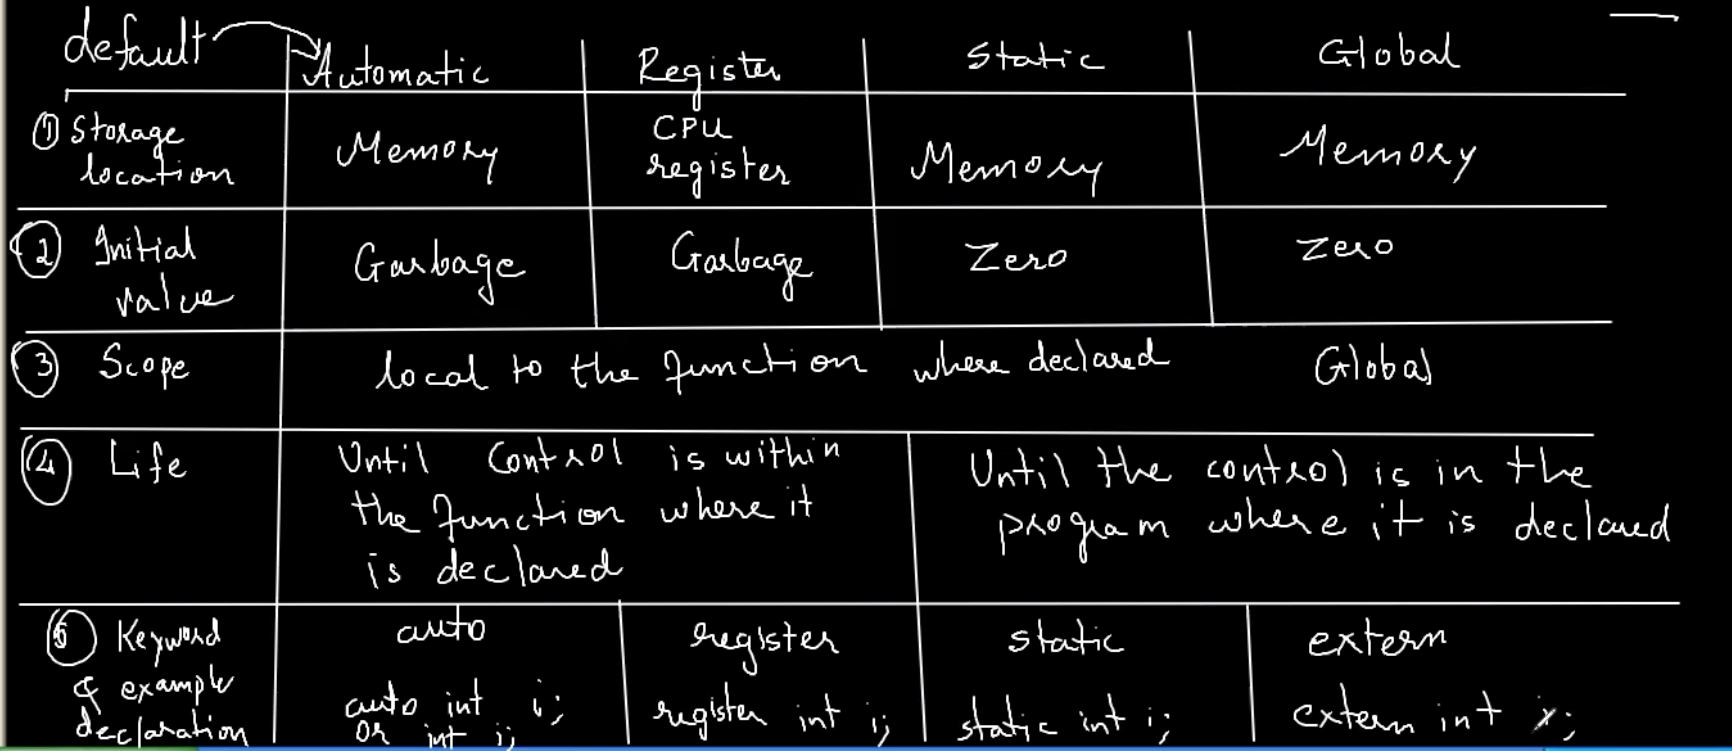 default
Automatic Register Static Global
① Storage location Memory CPU register Memory Memory
② Initial value Garbage Garbage Zero Zero
③ Scope local to the function where declared Global
④ Life Until Control is within the function where it is declared Until the control is in the program where it is declared
⑤ Keyword & example declaration auto register static extern
auto int i; or int i; register int i; static int i; extern int x;